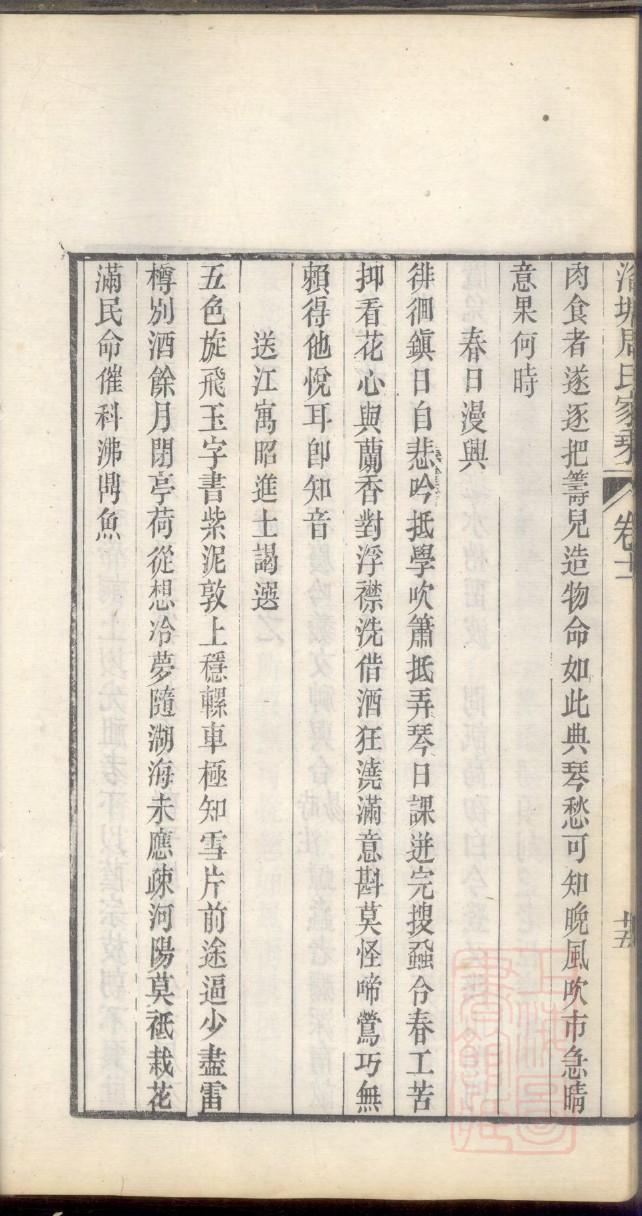 周氏家
卷十二
肉食者遂逐把籌兒造物命如此典琴愁可知晚風吹市急晴
意果何時
春日漫興
徘徊鎮日自悲吟抵學吹簫抵弄琴日課迸完搜蝨令春工苦
抑看花心與蘭香對浮襟洗借酒狂澆滿意斟莫怪啼鶯巧無
賴得他悅耳卽知音
送江寓昭進士謁選
五色旋飛玉字書紫泥敦上穩䡨車極知雪片前途逼少盡雷
樽別酒餘月閉亭荷從想冷夢隨湖海未應疎河陽莫祗栽花
滿民命催科沸鼎魚